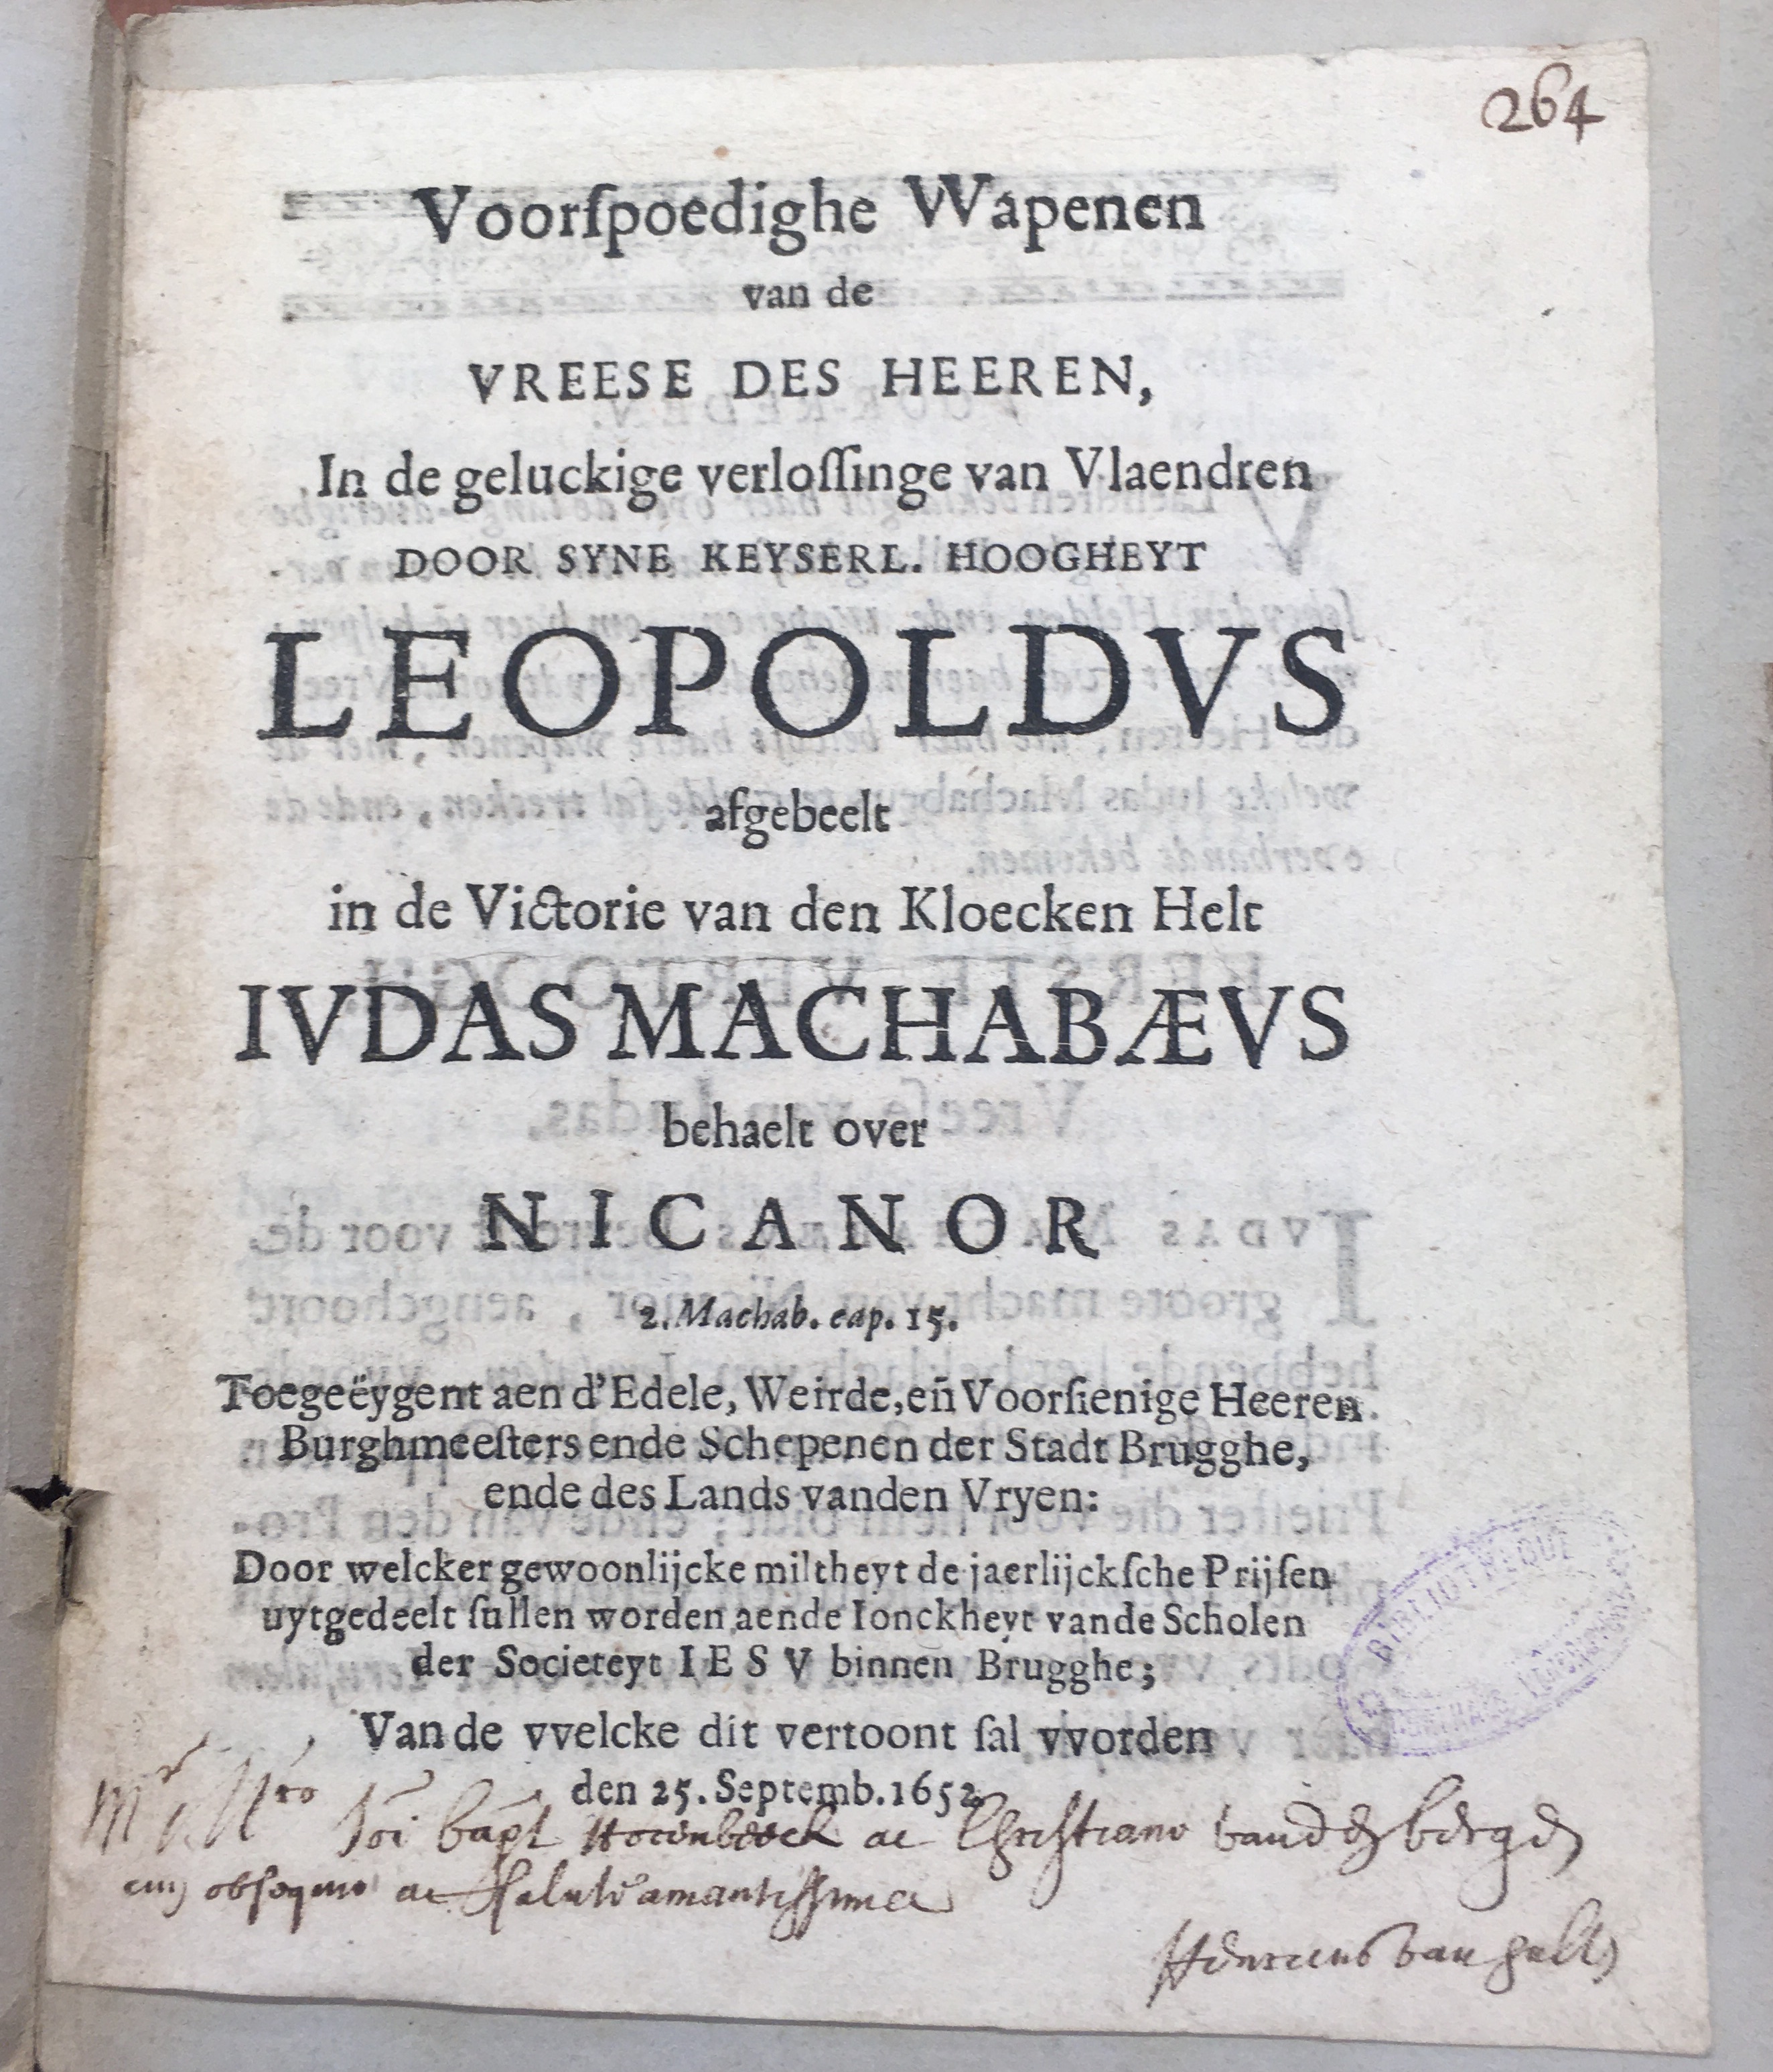 264
Voorſpoedighe Wapenen
van de
VREESE DES HEEREN,
In de geluckige verloſſinge van Vlaendren
DOOR SYNE KEYSERL. HOOGHEYT
LEOPOLDVS
afgebeelt
in de Victorie van den Kloecken Helt
IVDAS MACHABÆVS
behaelt over
NICANOR
2. Machab. cap. 15.
Toegeëygent aen d'Edele, Weirde, eñ Voorſienige Heeren
Burghmeeſters ende Schepenen der Stadt Brugghe,
ende des Lands vanden Vryen:
Door welcker gewoonlijcke miltheyt de jaerlijckſche Prijſen
uytgedeelt ſullen worden aende Ionckheyt vande Scholen
der Societeyt IESV binnen Brugghe;
Van de vvelcke dit vertoont ſal vvorden
den 25. Septemb. 1652.
bapt ac Christiano
obsequio ac
BIBLIOTHEQUE